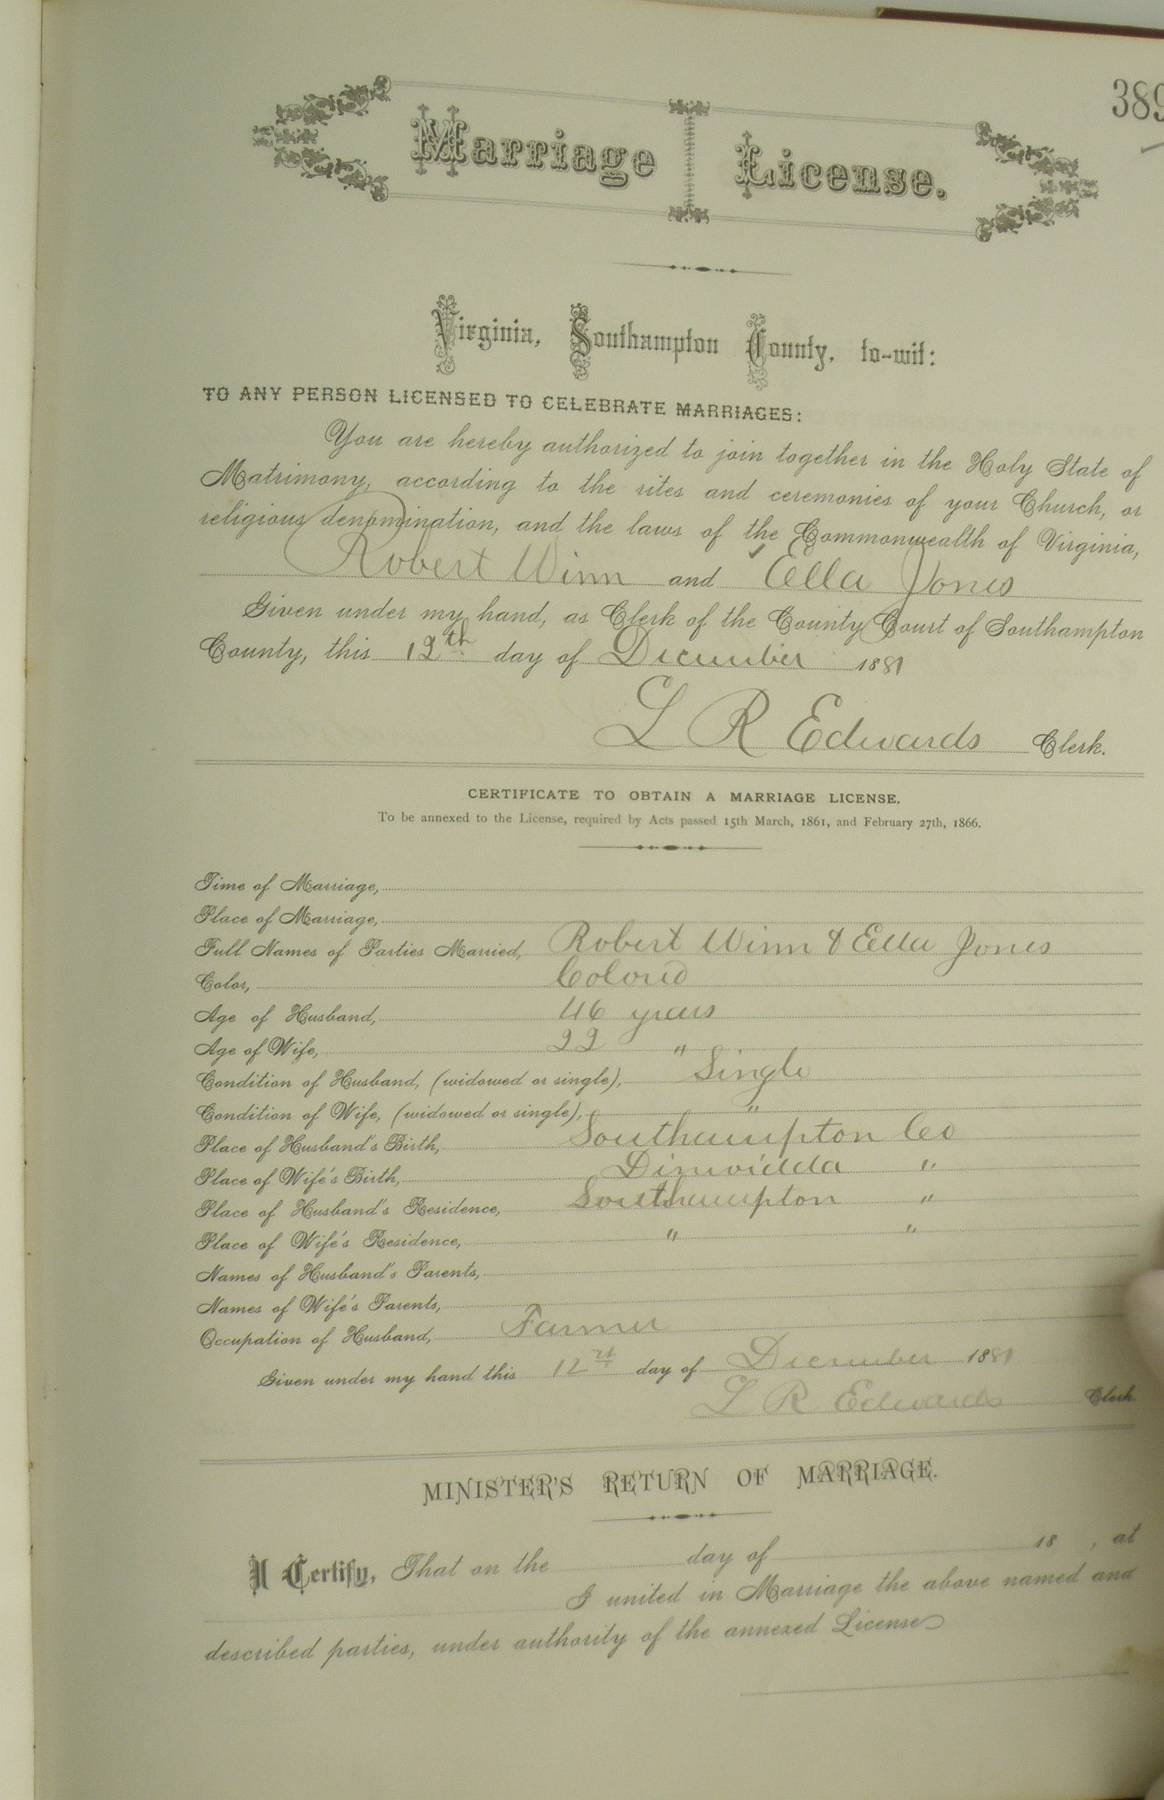 389
Marriage License.
Virginia, Southampton County, to-wit:
TO ANY PERSON LICENSED TO CELEBRATE MARRIAGES:
You are hereby authorized to join together in the Holy State of
Matrimony, according to the rites and ceremonies of your Church, or
religious denomination, and the laws of the Commonwealth of Virginia,
Robert Winn and Ella Jones
Given under my hand, as Clerk of the County Court of Southampton
County, this 12th day of December 1881
L R Edwards Clerk.
CERTIFICATE TO OBTAIN A MARRIAGE LICENSE.
To be annexed to the License, required by Acts passed 15th March, 1861, and February 27th, 1866.
Time of Marriage,
Place of Marriage,
Full Names of Parties Married, Robert Winn & Ella Jones
Color, Colored
Age of Husband, 46 years
Age of Wife, 22 "
Condition of Husband, (widowed or single), Single
Condition of Wife, (widowed or single), "
Place of Husband's Birth, Southampton Co
Place of Wife's Birth, Dinwidda "
Place of Husband's Residence, Southampton "
Place of Wife's Residence, " "
Names of Husband's Parents,
Names of Wife's Parents,
Occupation of Husband, Farmer
Given under my hand this 12th day of December 1881
L R Edwards Clerk
MINISTER'S RETURN OF MARRIAGE.
I Certify, That on the day of 18 , at
I united in Marriage the above named and
described parties, under authority of the annexed License